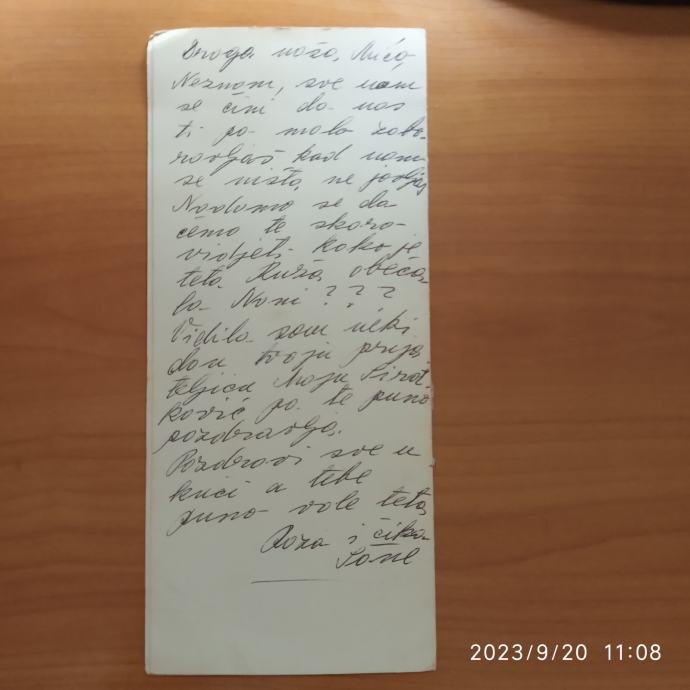 Draga naša, Mićo,
Neznam, sve nam
se čini da nas
ti pa malo zabo-
ravljaš kad nam
se ništa, ne javljaš
Nadamo se da
ćemo te skoro
vidjeti kako je
teta Ruža obeća-
la Noni ? ? ?
Vidila sam neki
dan tvoju prija-
teljicu Maju Sirot-
ković pa te puno
pozdravlja.
Pozdravi sve u
kući a tebe
puno vole teta
Roza i čika
2023/9/20 11:08